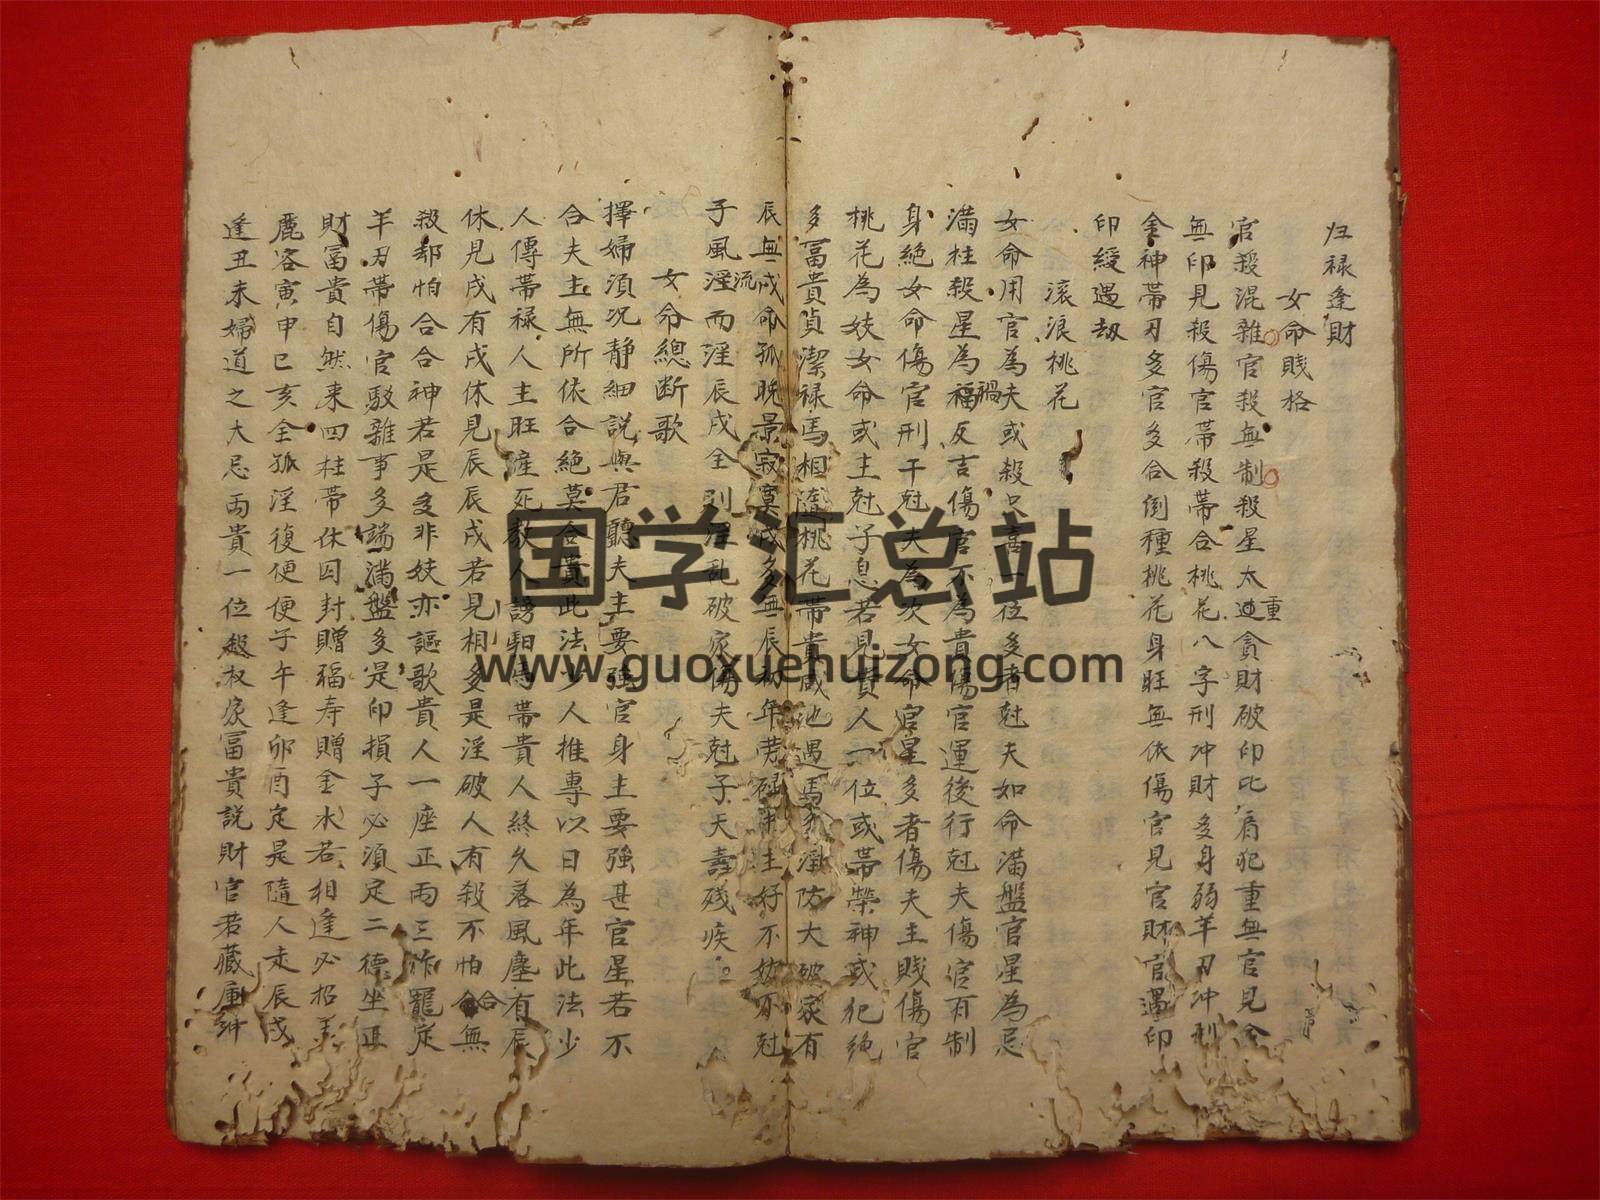 归禄逢財
女命賤格
官殺混雜官殺無制殺星太重貪財破印比肩犯重無官見合
無印見殺傷官帶殺帶合桃花八字刑冲財多身弱羊刃冲刑
金神帶刃多官多合倒種桃花身旺無依傷官見官財官遇印
印綬遇劫
滚浪桃花
女命用官為夫或殺只喜一位多者尅夫如命滿盤官星為忌
滿柱殺星為福禍反吉傷官不為貴傷官運後行尅夫傷官有制
身絕女命傷官刑干尅夫為次女命官星多者傷夫主賤傷官
桃花為妓女命或主尅子息若見貴人一位或帶榮神或犯絕
多冨貴貞潔禄馬相隨桃花帶貴咸池遇馬多淫防大破家有
辰無戌命孤晚景寂寞戌多無辰初年勞碌 生好不妨不尅
子風流淫而淫辰戌全則淫乱破家傷夫尅子夭壽殘疾
女命總断歌
擇婦須况静細説與君聽夫主要強官身主要強甚官星若不
合夫主無所依合絕莫合貴此法少人推專以日為年此法少
人傳帶禄人主旺 死教人謗馹馬帶貴人終久落風塵有辰
休見戌有戌休見辰辰戌若見相多是淫破人有殺不怕合無
殺却怕合合神若是多非妓亦謳歌貴人一座正两三作寵定
羊刃帶傷官駁雜事多端滿盤多是印損子必須定二德坐正
財冨貴自然来四柱帶休囚封贈福寿贈金水若相逢必招美
麗容寅申巳亥全孤淫復便便子午逢卯酉定是隨人走辰戌
逢丑未婦道之大忌両貴一位殺权家冨貴説財官若藏庫冲
国学汇总站
www.guoxuehuizong.com